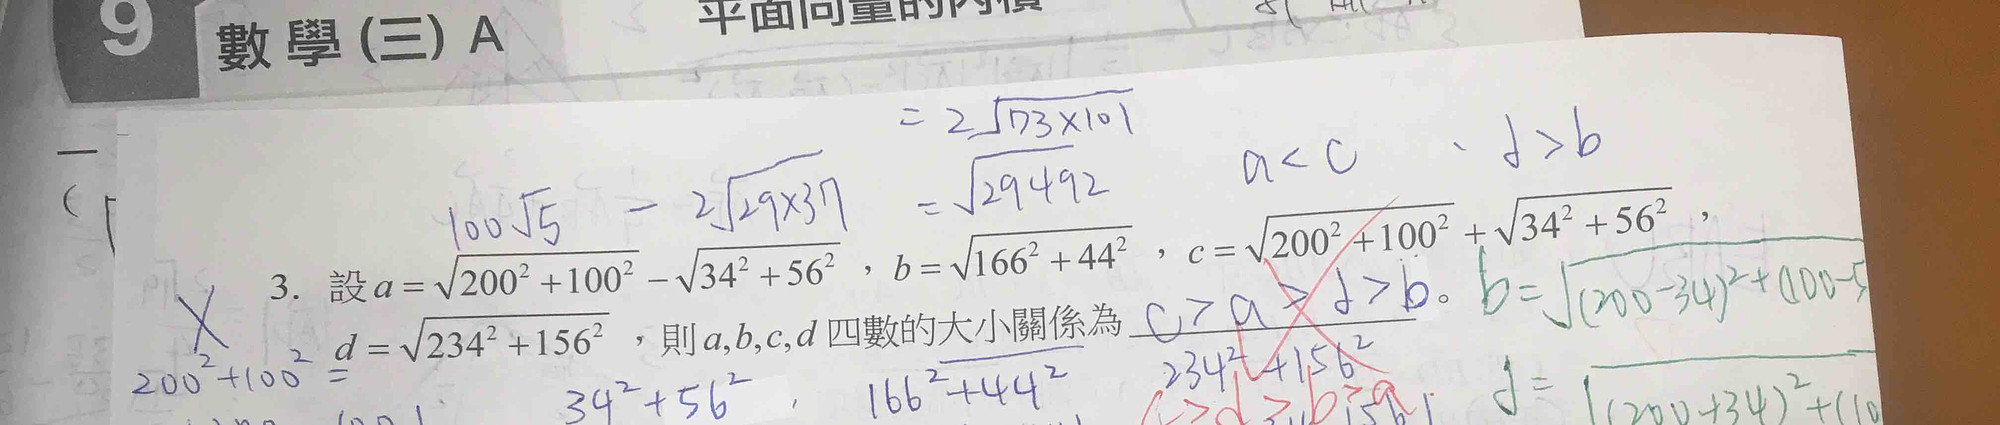 9 數學(三)A
平面向量的內積
= 2√73×101
100√5 - 2√29×37 = √29492 a<c 、 d>b
3. 設a=√200²+100² -√34²+56² ，b=√166²+44² ，c=√200²+100² +√34²+56² ，
d=√234²+156² ，則a,b,c,d四數的大小關係為 c>a>d>b。
b=√(200-34)²+(100-5
200²+100² =
34²+56² , 166²+44² 234²+156²
c>d>b>a
d=√(200+34)²+(10